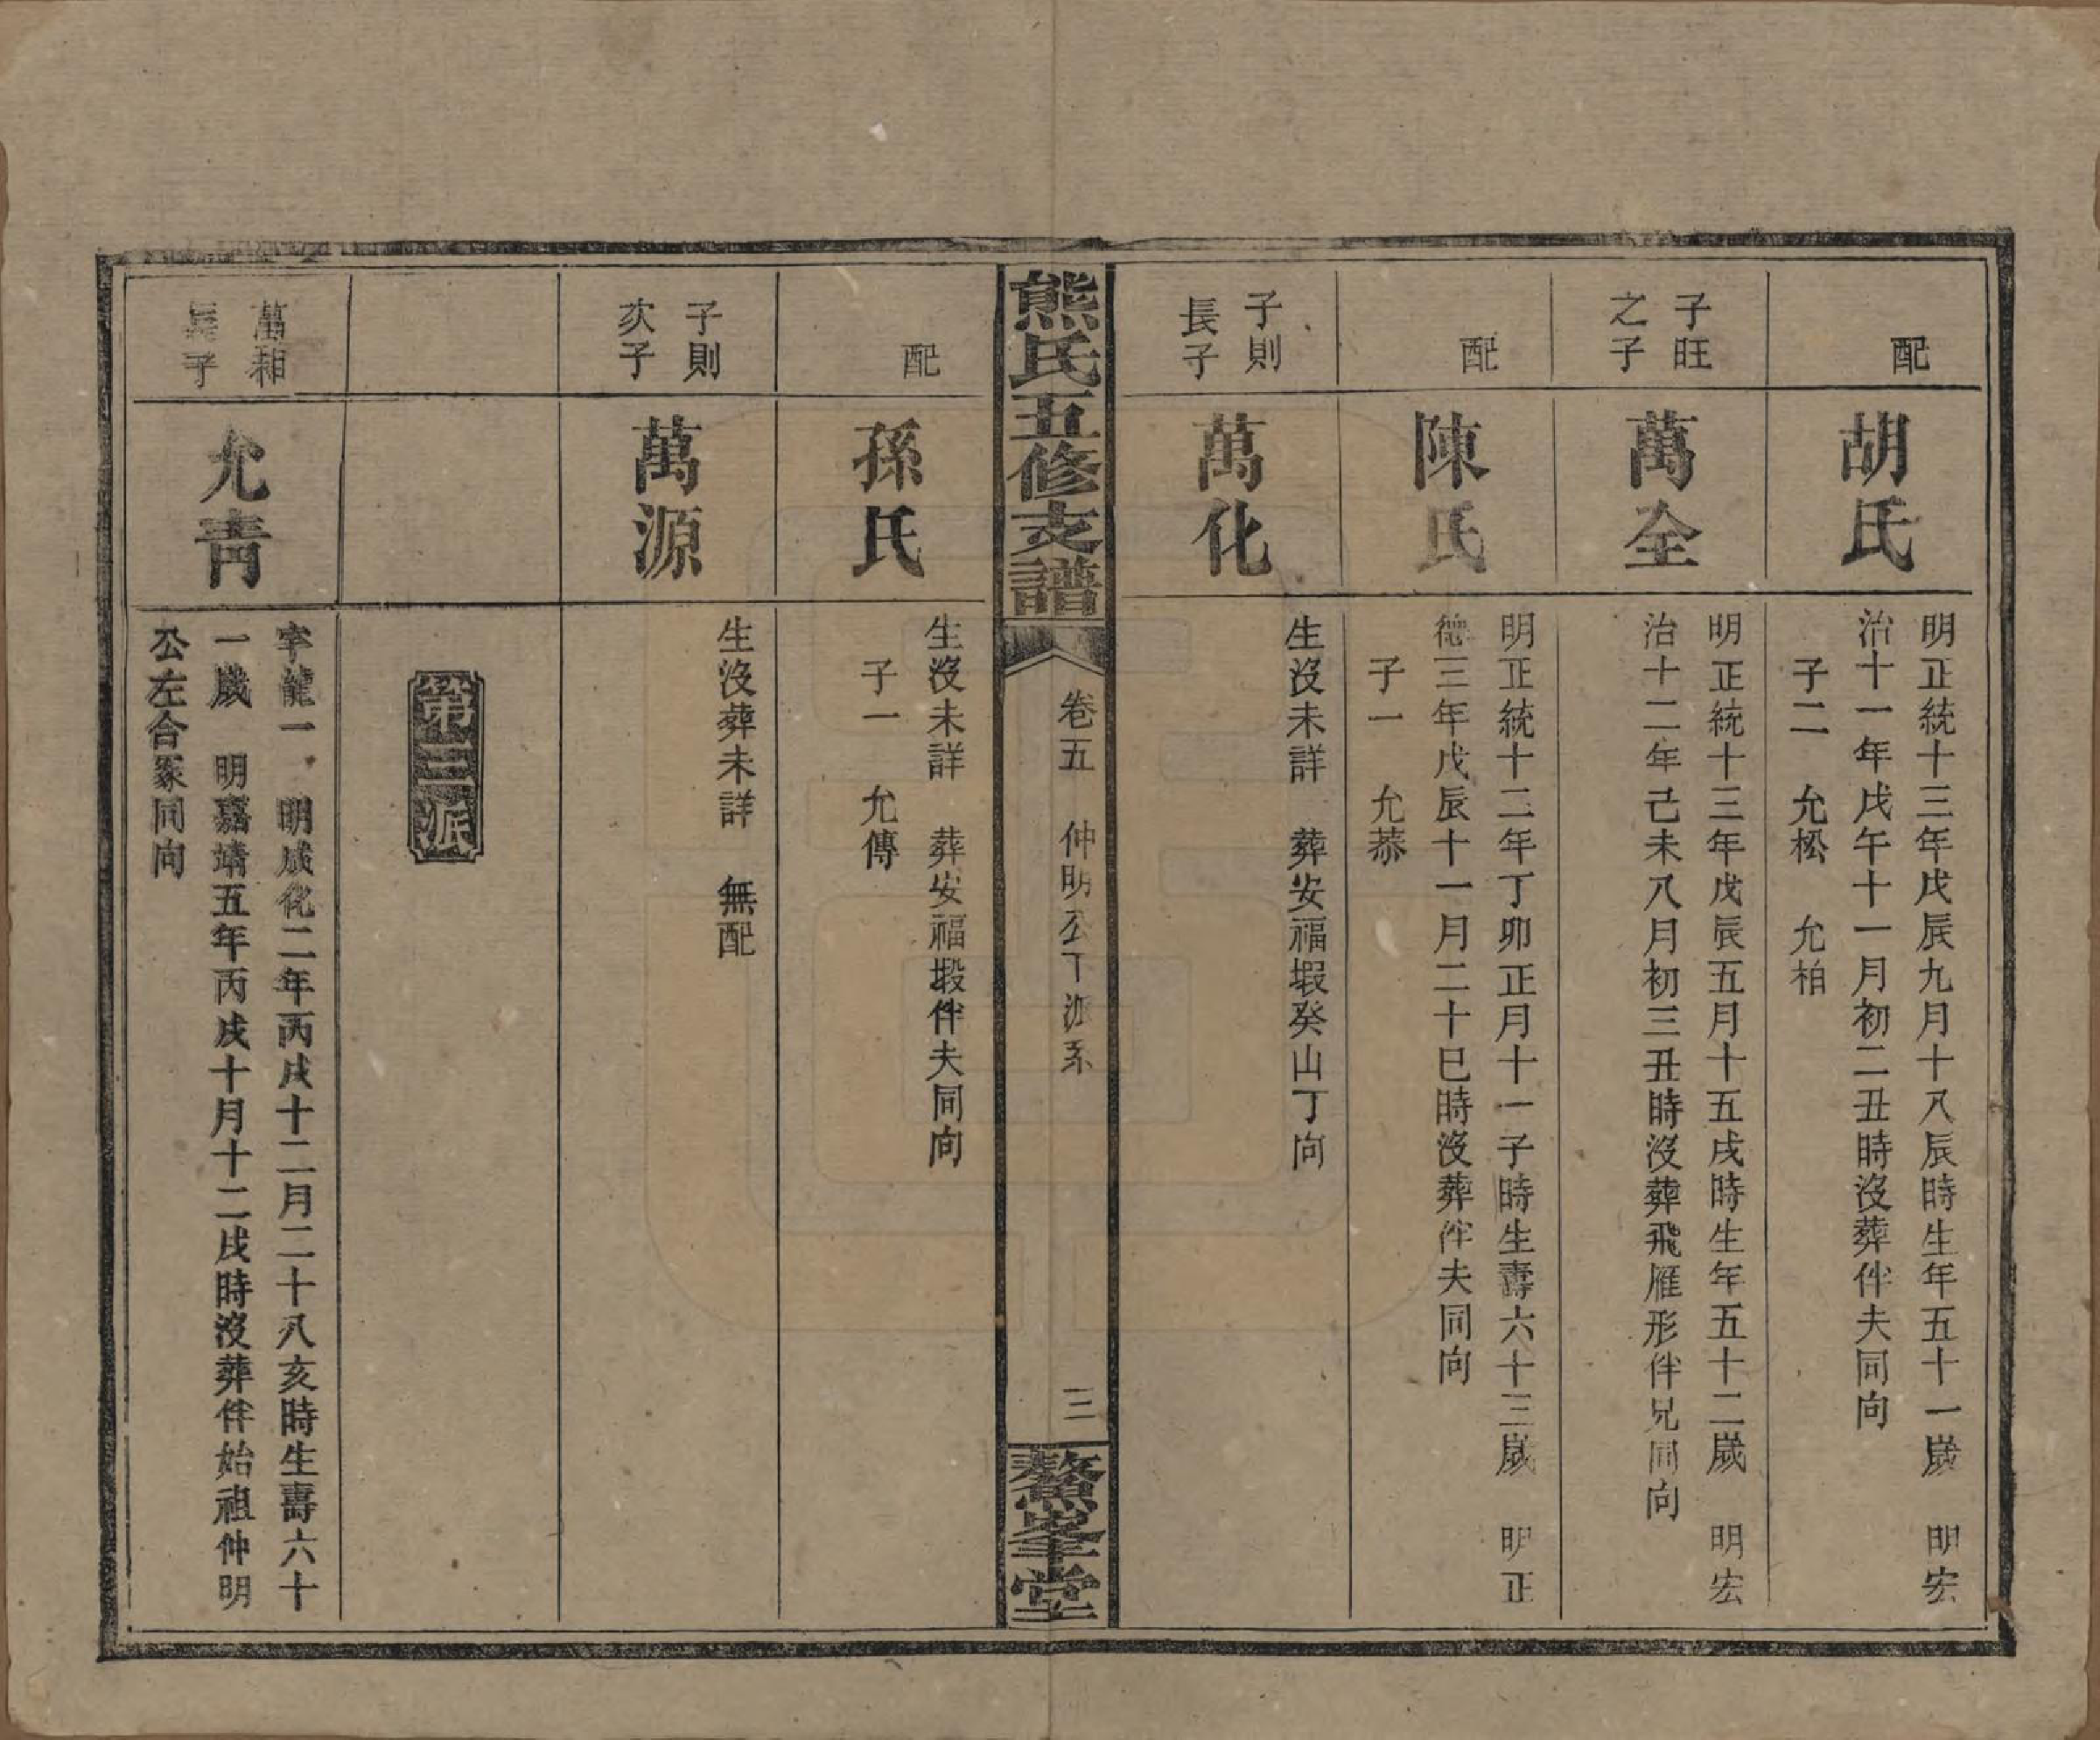 配
胡氏
明正統十三年戊辰九月十八辰時生年五十一歲　明宏
治十一年戊午十一月初二丑時沒葬伴夫同向
子二　允松　允柏
子旺
之子
萬全
明正統十三年戊辰五月十五戌時生年五十二歲　明宏
治十二年己未八月初三丑時沒葬飛雁形伴兄同向
配
陳氏
明正統十二年丁卯正月十一子時生壽六十三歲　明正
德三年戊辰十一月二十巳時沒葬伴夫同向
子一　允恭
子則
長子
萬化
生沒未詳　葬安福塅癸山丁向
熊氏五修支譜
卷五　仲明公下派系
三
鰲峯堂
配
孫氏
生沒未詳　葬安福塅伴夫同向
子一　允傳
子則
次子
萬源
生沒葬未詳　無配
第三派
萬和
長子
允青
字龍一　明成化二年丙戌十二月二十八亥時生壽六十
一歲　明嘉靖五年丙戌十月十二戌時沒葬伴始祖仲明
公左合冢同向